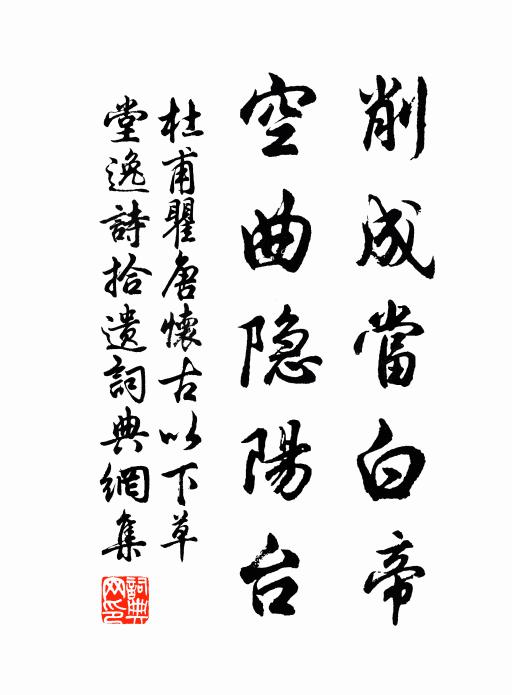 削成當白帝
空曲隐陽台
杜甫瞿唐懷古以下草
堂逸詩拾遺詞典網集
詞典网印